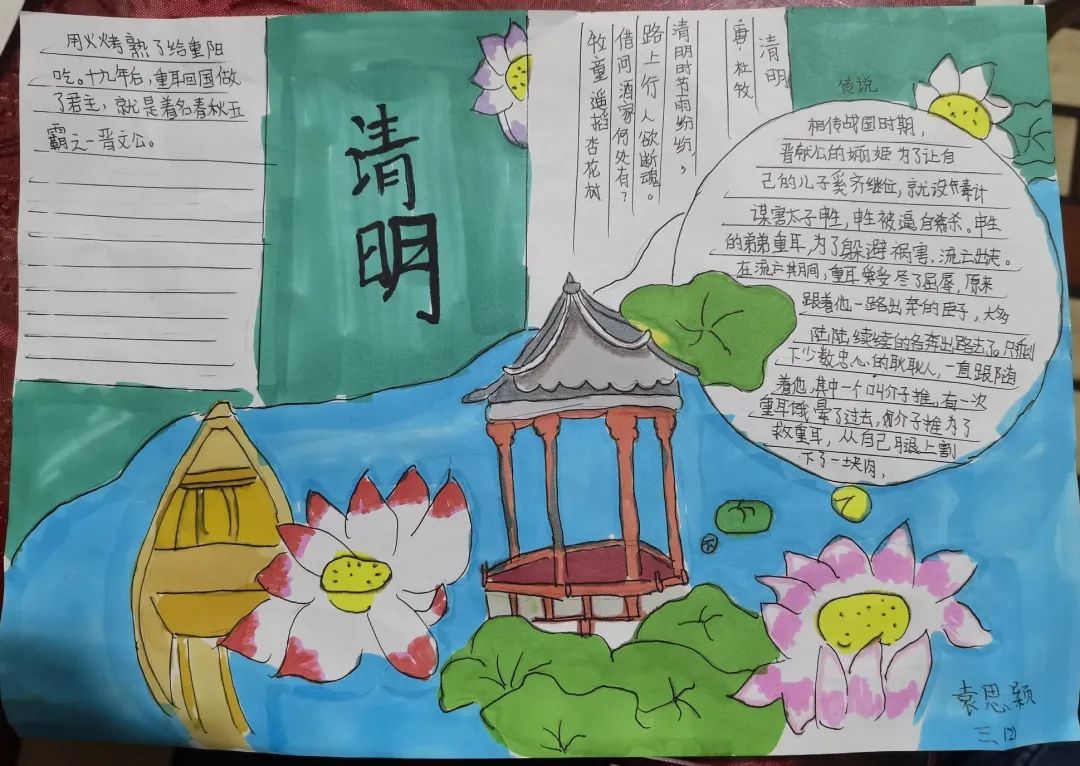 用火烤熟了给重阳
吃。十九年后，重耳回国做
了君主，就是着名春秋五
霸之一晋文公。
清明
清明
唐·杜牧
清明时节雨纷纷，
路上行人欲断魂。
借问酒家何处有？
牧童遥指杏花树
传说
相传战国时期，
晋献公的姬为了让自
己的儿子奚齐继位，就设毒计
谋害太子申生，申生被逼自杀。申生
的弟弟重耳，为了躲避祸害，流亡出走。
在流亡期间，重耳受尽了屈辱，原来
跟着他一路出奔的臣子，大多
陆陆续续的各奔出路去了。只剩
下少数忠心的耿耿人，一直跟随
着他，其中一个叫介子推。有一次
重耳饿晕了过去，介子推为了
救重耳，从自己腿上割
下了一块肉，
袁思颖
三(2)